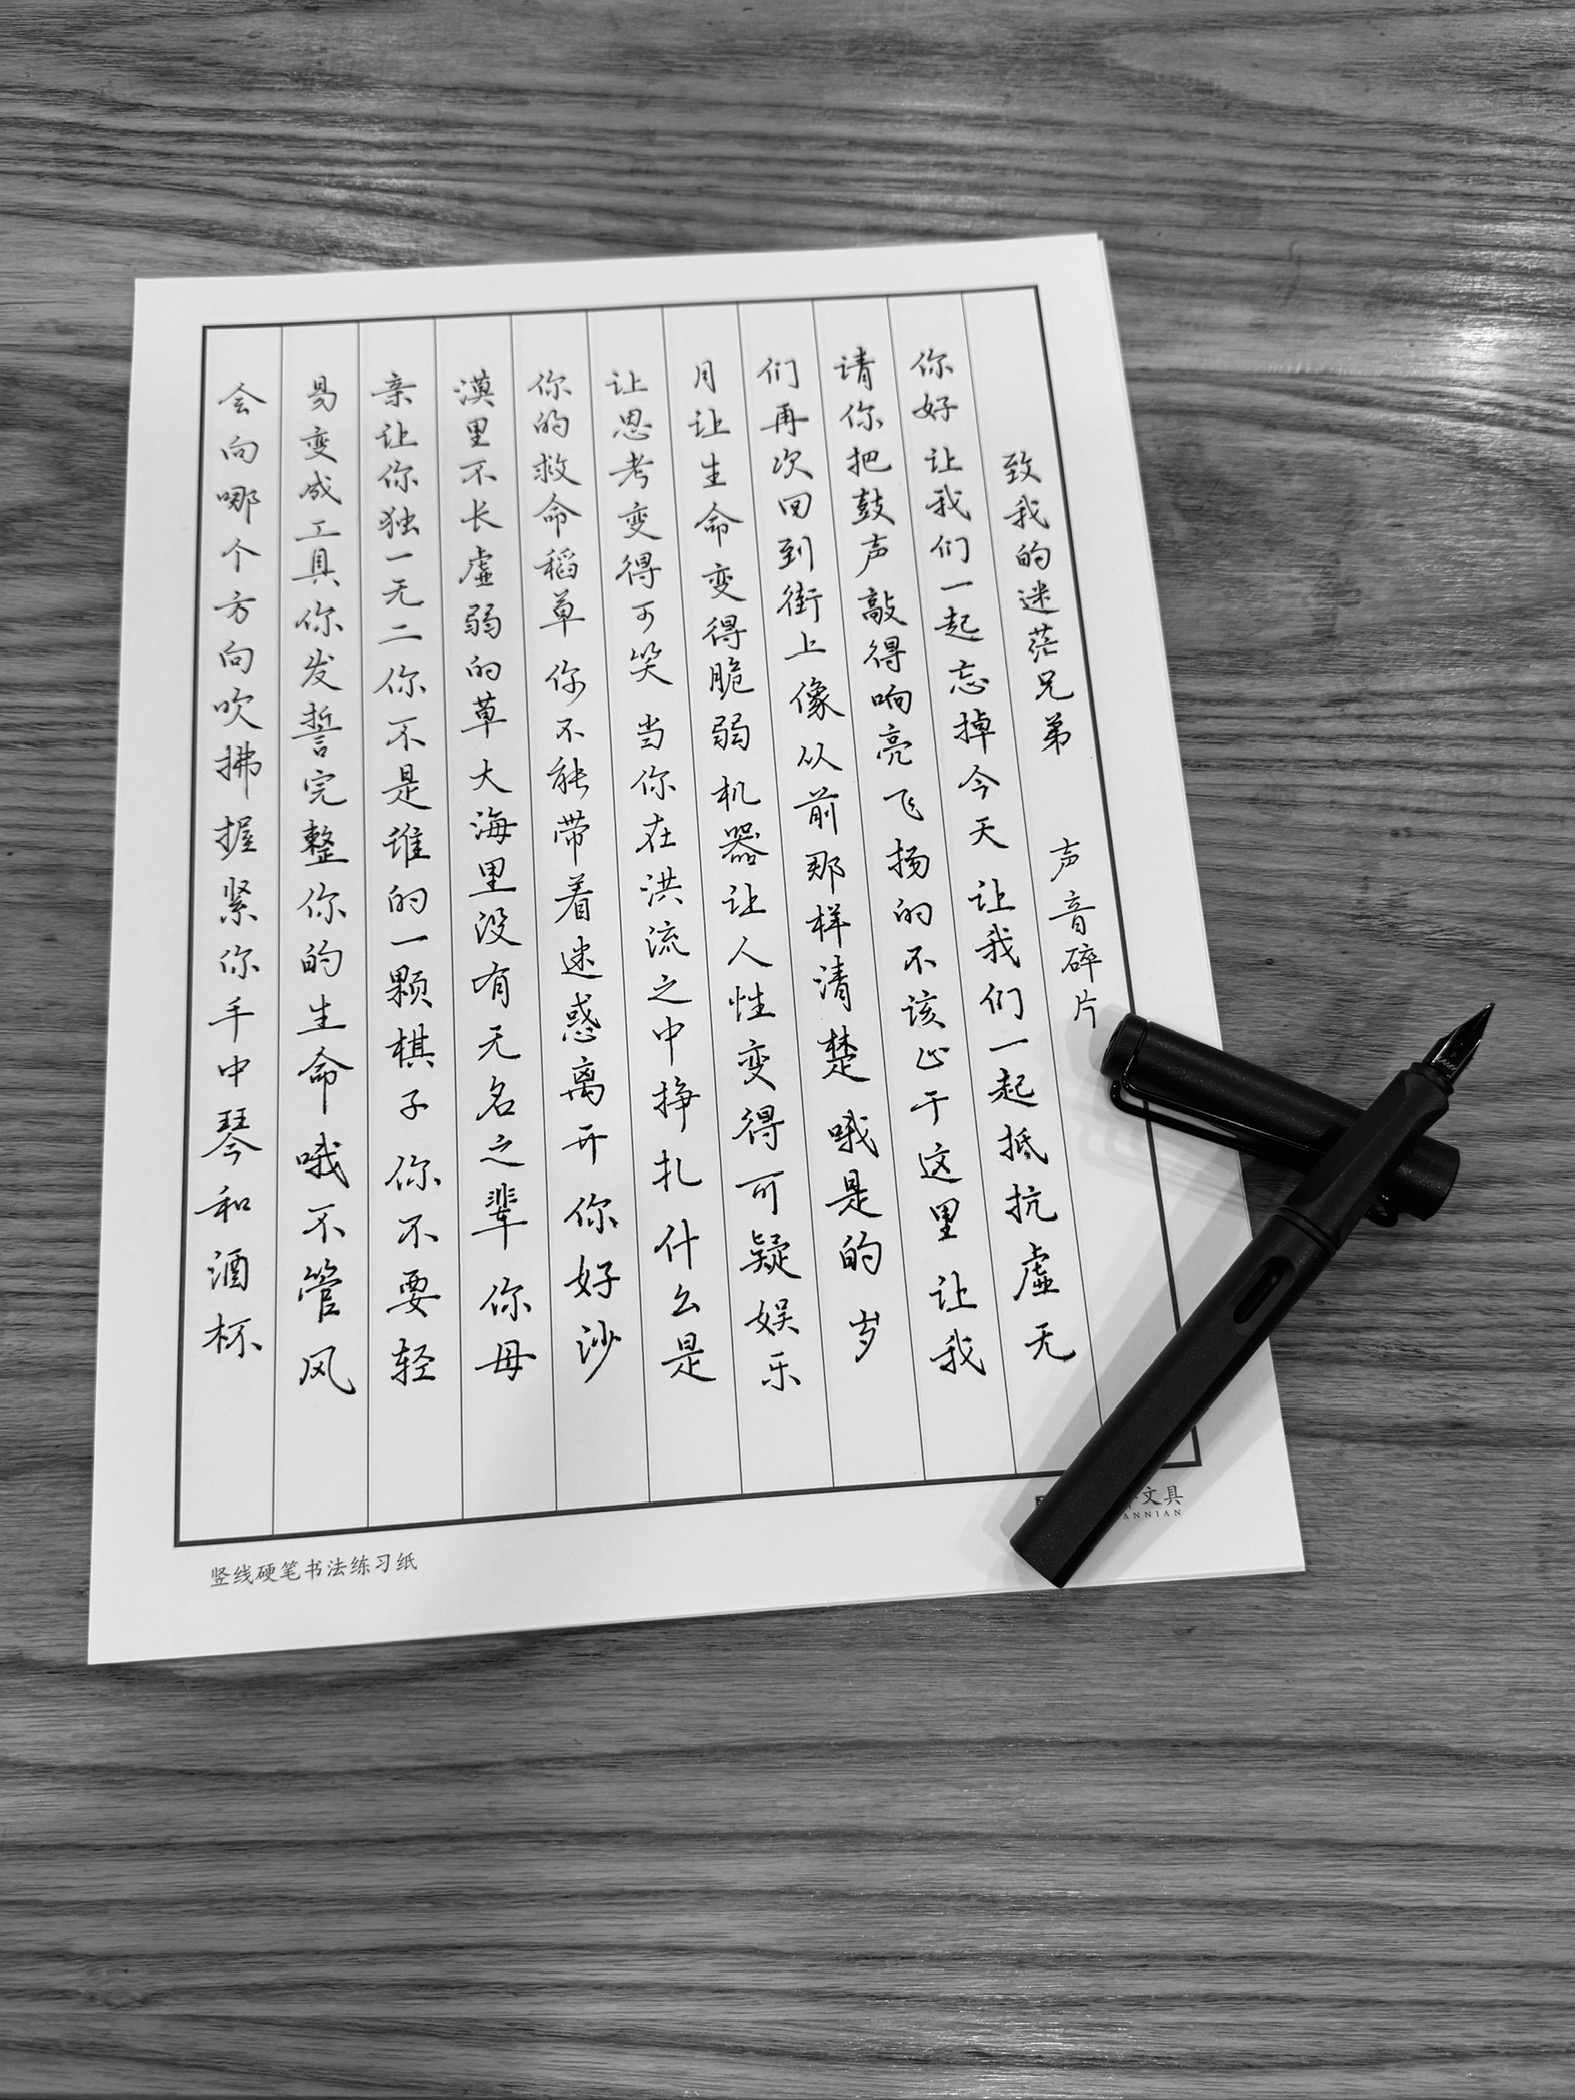 致我的迷茫兄弟 声音碎片
你好 让我们一起忘掉今天 让我们一起抵抗虚无
请你把鼓声敲得响亮 飞扬的不该止于这里 让我
们再次回到街上 像从前那样清楚 哦是的 岁
月让生命变得脆弱 机器让人性变得可疑 娱乐
让思考变得可笑 当你在洪流之中挣扎 什么是
你的救命稻草 你不能带着迷惑离开 你好 沙
漠里不长虚弱的草 大海里没有无名之辈 你母
亲让你独一无二 你不是谁的一颗棋子 你不要轻
易变成工具 你发誓完整你的生命 哦 不管风
会向哪个方向吹拂 握紧你手中琴和酒杯
竖线硬笔书法练习纸
文具
ANNIAN